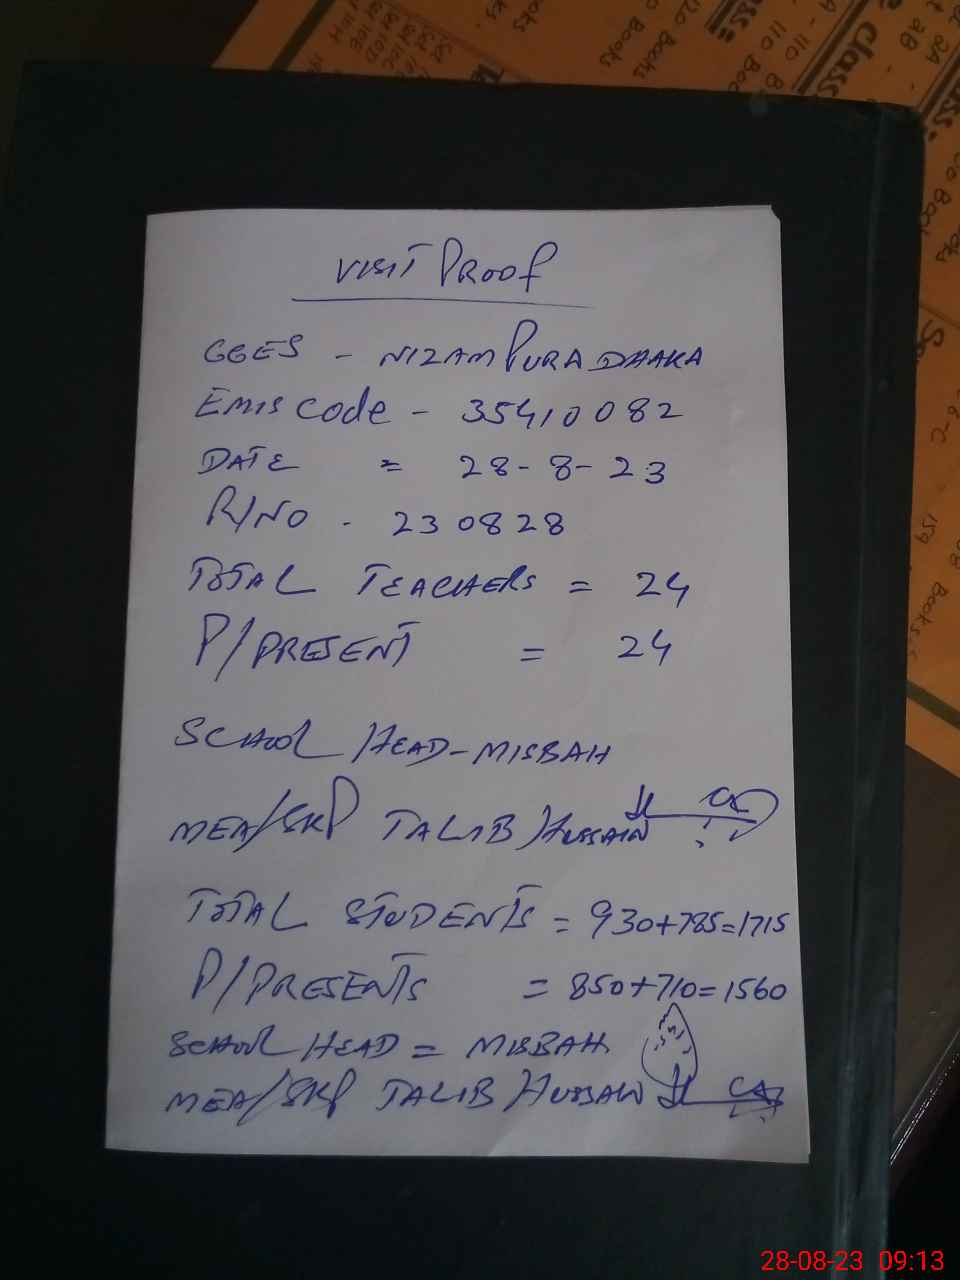 VISIT PROOF
GGES - NIZAMPURA DHAKA
EMIS Code - 35410082
DATE = 28-8-23
R/NO - 230828
TOTAL TEACHERS = 24
P/PRESENT = 24
SCHOOL HEAD - MISBAH
MEA/SKP TALIB HUSSAIN
TOTAL STUDENTS = 930+785=1715
P/PRESENTS = 850+710=1560
SCHOOL HEAD = MISBAH
MEA/SKP TALIB HUSSAIN
28-08-23 09:13